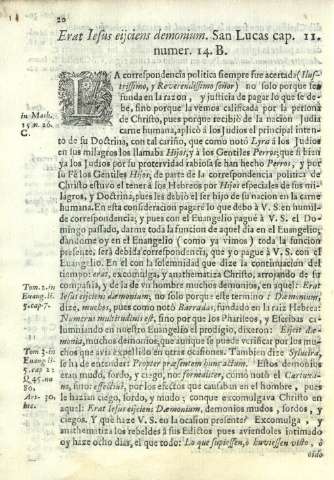 20
Erat Iesus eijciens demonium. San Lucas cap. 11.
numer. 14. B.
LA correspondencia politica siempre fue acertada (Ilus-
trissimo, y Reverendissimo señor) no solo porque se
funda en la razon, y justicia de pagar lo que se de-
be, sino porque la vemos calificada por la persona
in Math. de Christo, pues porque recibiò de la nacion Judia
15. n. 26. carne humana, aplicò a los Judios el principal inten-
C. to de su Doctrina, con tal cariño, que como notò Lyra à los Judios
en sus milagros los llamaba Hijos, y à los Gentiles Perros; que si bien
ya los Judios por su protervidad rabiosa se han hecho Perros, y por
su Fè los Gentiles Hijos, de parte de la correspondencia politica de
Christo estuvo el tener à los Hebreos por Hijos especiales de sus mi-
lagros, y Doctrina, pues les debiò el ser hijo de su nacion en la carne
humana. En esta consideracion pagarè lo que debo à V. S. en humil-
de correspondencia, y pues con el Evangelio paguè à V. S. el Do-
mingo passado, darme toda la funcion de aquel dia en el Evangelio,
dandome oy en el Evangelio (como ya vimos) toda la funcion
presente, serà debida correspondencia, que yo pague à V. S. con el
Evangelio. En èl con la solemnidad que dize la continuacion del
tiempo: erat, excomulga, y anathematiza Christo, arrojando de su
Tom. 2. in compañia, y de la de vn hombre muchos demonios, en aquel: Erat
Euang. li. Iesus eijciens dæmonium, no solo porque este termino: Dæmonium,
5. cap. 7. dize, muchos, pues como notò Barradas, fundado en la raiz Hebrea:
Numerus multitudinis est, sino porque los Phariseos, y Escribas ca-
lumniando en nuestro Evangelio el prodigio, dixeron: Eijcit dæ-
monia, muchos demonios; que aunque se puede verificar por los mu-
Tom 5. in chos que avia expellido en otras ocasiones. Tambien dize Sylveira,
Euang se ha de entender: Propter præsentem hunc actum. Estos demonios
5. cap. 22 eran mudo, sordo, y ciego, no formalitèr, como notò el Carthuxa-
Q 45. nu no, sino: effectivè, por los efectos que causaban en el hombre, pues
80. le hazian ciego, sordo, y mudo; conque excomulgava Christo en
Art. 30. aquel: Erat Iesus eijciens Dæmonium, demonios mudos, sordos, y
hic. ciegos. Y què haze V. S. en la ocasion presente? Excomulga, y
anathematiza los rebeldes à sus Edictos pues aviendoles intimado
oy haze ocho dias, el que todo: Lo que supiessen, ò huviessen visto, ò
oido